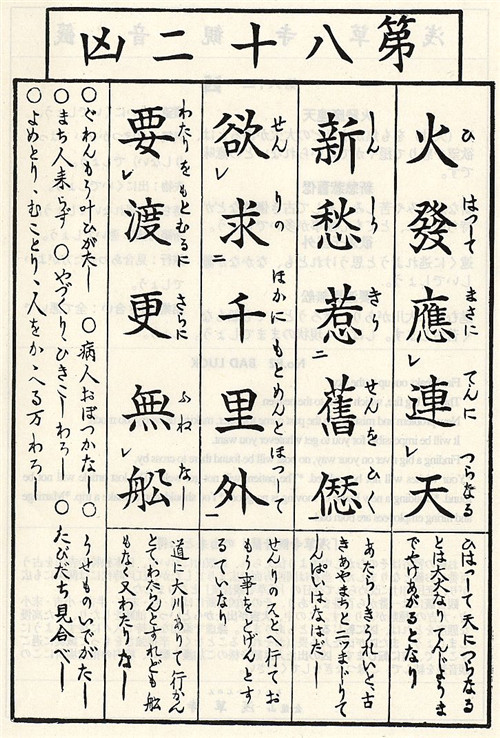 第八十二凶
火發應レ連レ天
ひ はつて まさに てんに つらなる
ひはつて天につらなる
とは大火なりてんじようま
でやけあがるとなり
新愁惹二舊愆一
しんしう きう せんをひく
あたらしきうれいと、古
きあやまちと二ツまじりて
しんぱいはなはだし
欲レ求二千里外一
せんりのほかにもとめんとほつして
せんりの
とへ行てお
もう事をとげんとす
るていなり
要レ渡更無レ舩
わたりをもとむるに さらに ふねなし
道に大川ありて行かん
とてわたらんとすれども舩
もなく又わたしなし
○ぐわんもう叶ひがたし ○病人おぼつかなし ○うせものいでがたし
○まち人来らず ○やづくり、ひきこしわろし ○たびだち見合べし
○よめとり、むことり、人をかゝへる万わろし